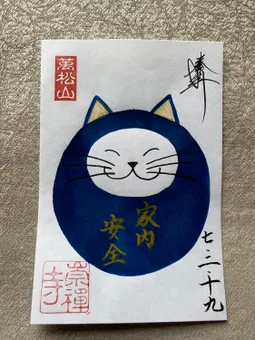 奉拝
萬松山
家内
安全
七・三・十九
崇禅
寺